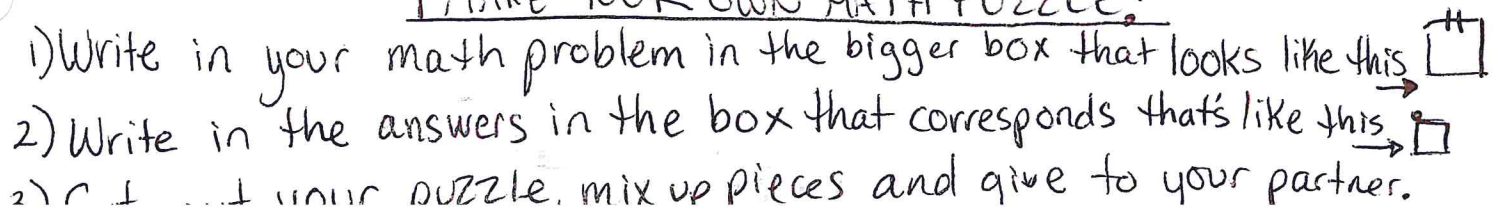 MAKE YOUR OWN MATH PUZZLE!
1) Write in your math problem in the bigger box that looks like this
2) Write in the answers in the box that corresponds that's like this
3) Cut out your puzzle, mix up pieces and give to your partner.